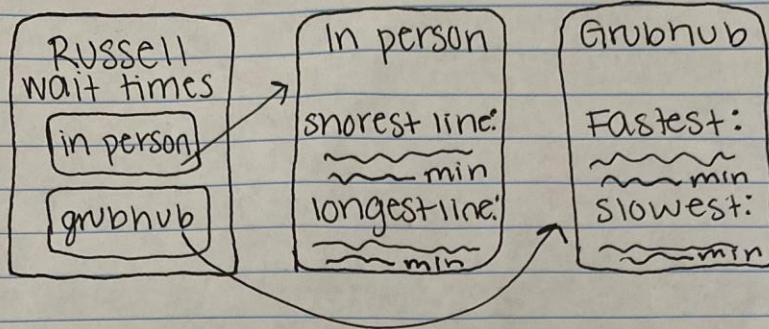 Russell
wait times
in person
grubhub
In person
shorest line:
min
longest line:
min
Grubhub
Fastest:
min
Slowest:
min